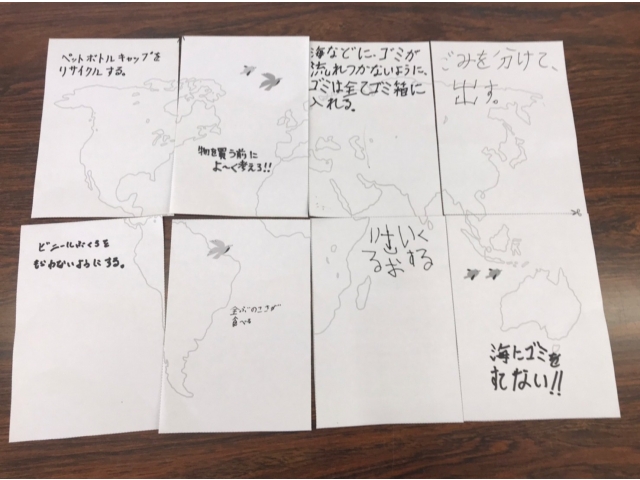 ペットボトルキャップを
リサイクルする。
物を買う前に
よ〜く考えろ!!
海などに、ゴミが
流れつかないように、
ゴミは全てゴミ箱に
入れる。
ごみを分けて、
出す。
ビニールぶくろを
もらわないようにする。
食べる
海にゴミを
すてない!!